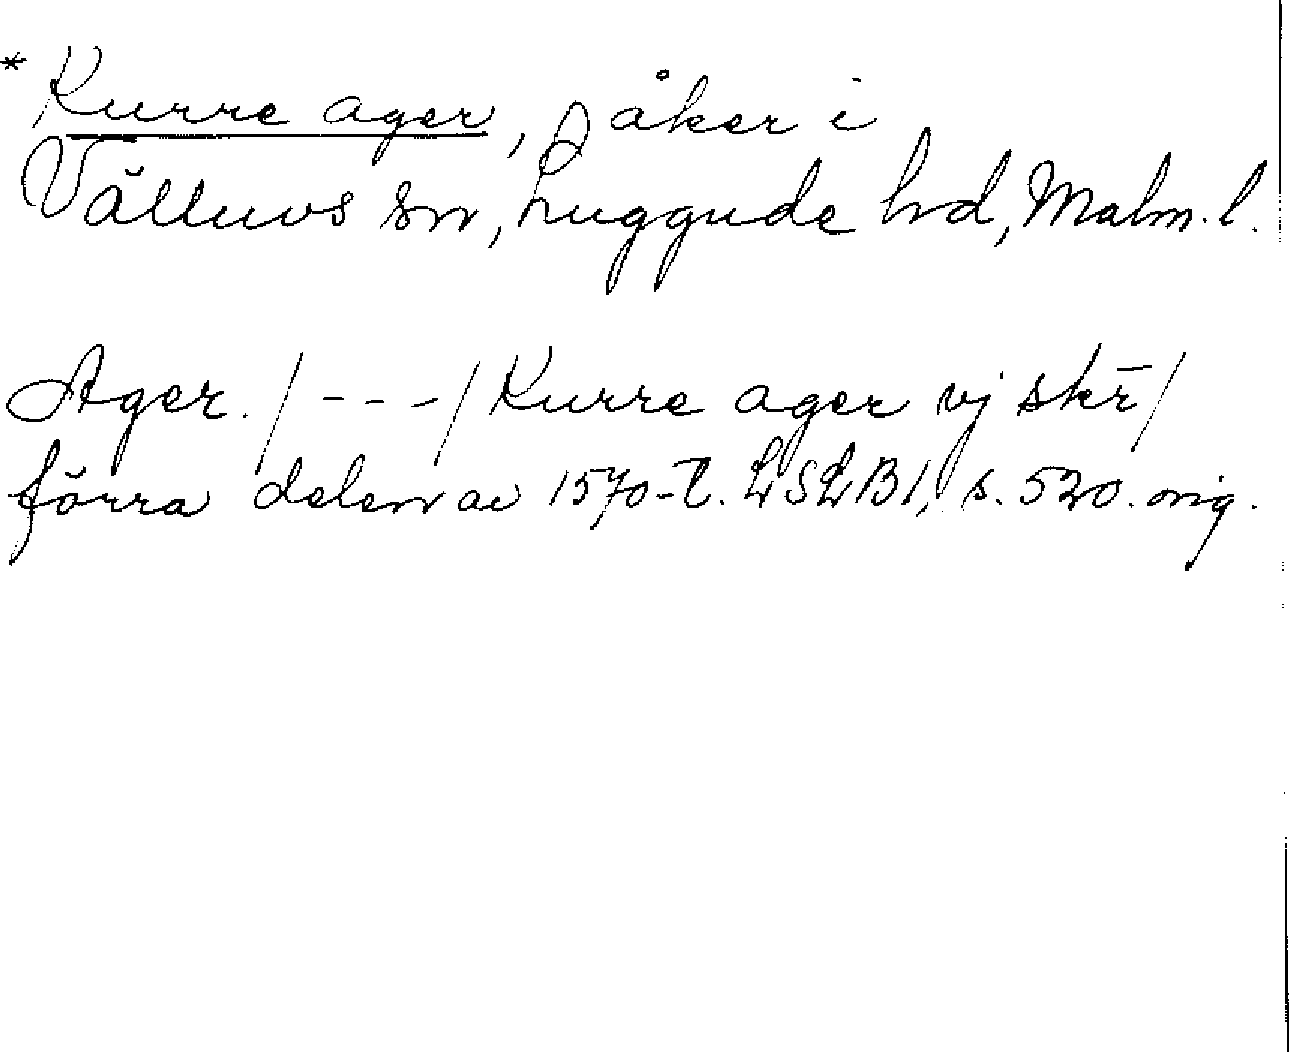 * Kurre ager, åker i
Välluvs sn, Luggude hd, Malm. l.
Ager. /---/ Kurre ager vj skr̄/
förra delen av 1570-t. LSLB 1, s. 520. orig.